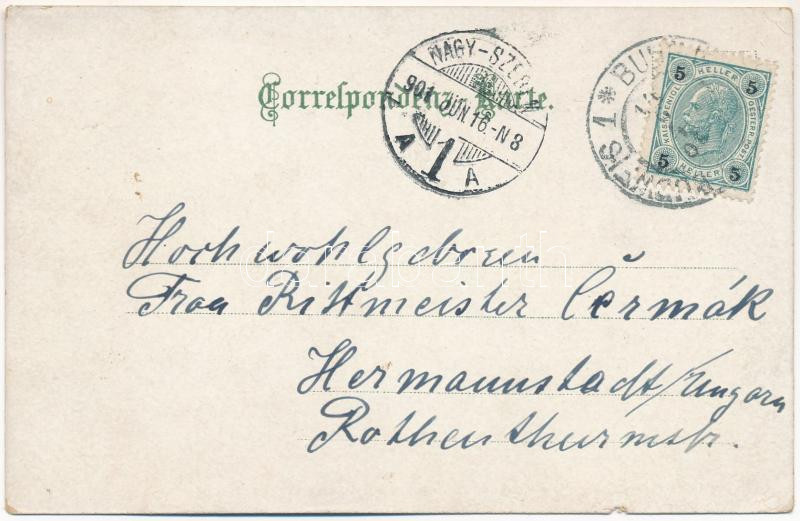 Correspondenz-Karte.
NAGY-SZEBEN
901 JUN 16.-N 8
A 1 A
1 * BUDWEIS
5 HELLER 5
KAIS. KOENIGL. OESTERR. POST
5 HELLER 5
Hochwohlgeboren
Frau Rittmeister Čermák
Hermannstadt/Ungarn
Rothenthurmstr.